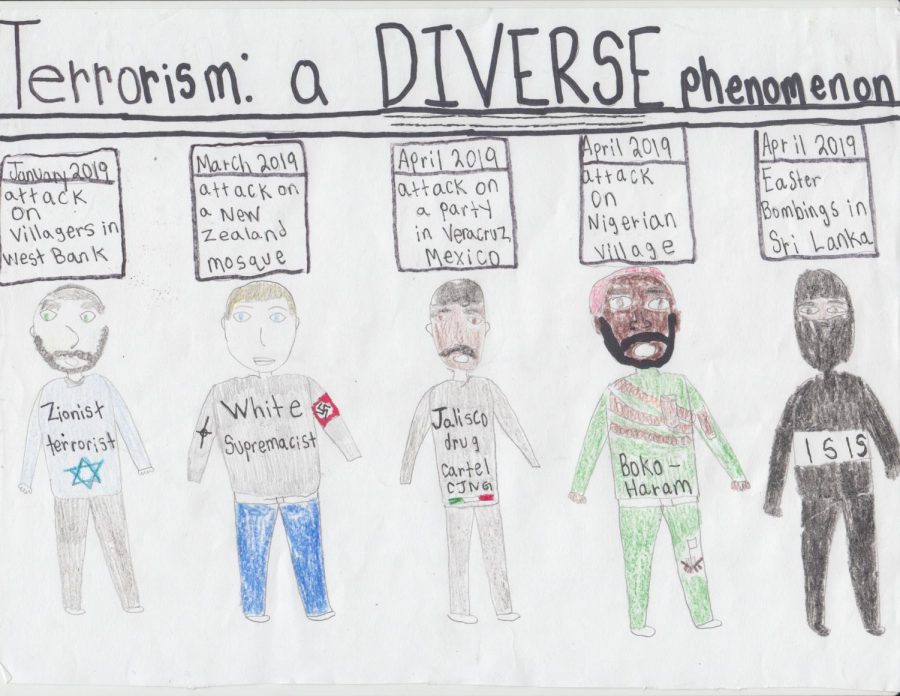 Terrorism: a DIVERSE phenomenon
January 2019
attack
on
villagers in
West Bank
March 2019
attack on
a New
Zealand
mosque
April 2019
attack on
a party
in Veracruz,
Mexico
April 2019
attack
on
Nigerian
village
April 2019
Easter
Bombings in
Sri Lanka
Zionist
terrorist
White
Supremacist
Jalisco
drug
cartel
CJNG
Boko-
Haram
ISIS